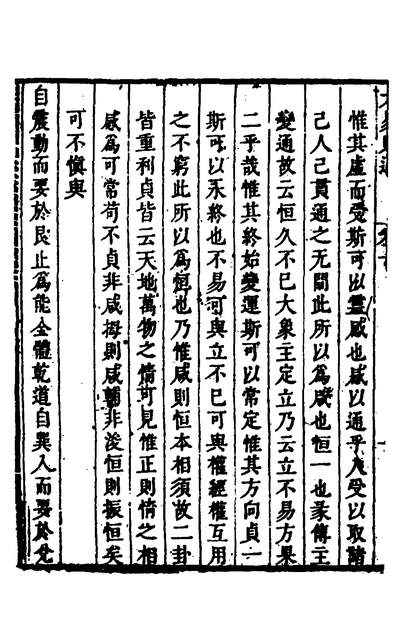 惟其虛而受斯可以靈感也咸以通乎人受以取諸
己人己貫通之无間此所以為咸也恒一也彖傳主
變通故云恒久不已大象主定立乃云立不易方果
二乎哉惟其終始變運斯可以常定惟其方向貞一
斯可以永終也不易可與立不已可與權經權互用
之不窮此所以為恒也乃惟咸則恒本相須故二卦
皆重利貞皆云天地萬物之情可見惟正則情之相
感為可常苟不貞非咸拇則咸輔非浚恒則振恒矣
可不慎與
自震動而要於艮止為能全體乾道自巽入而要於兌